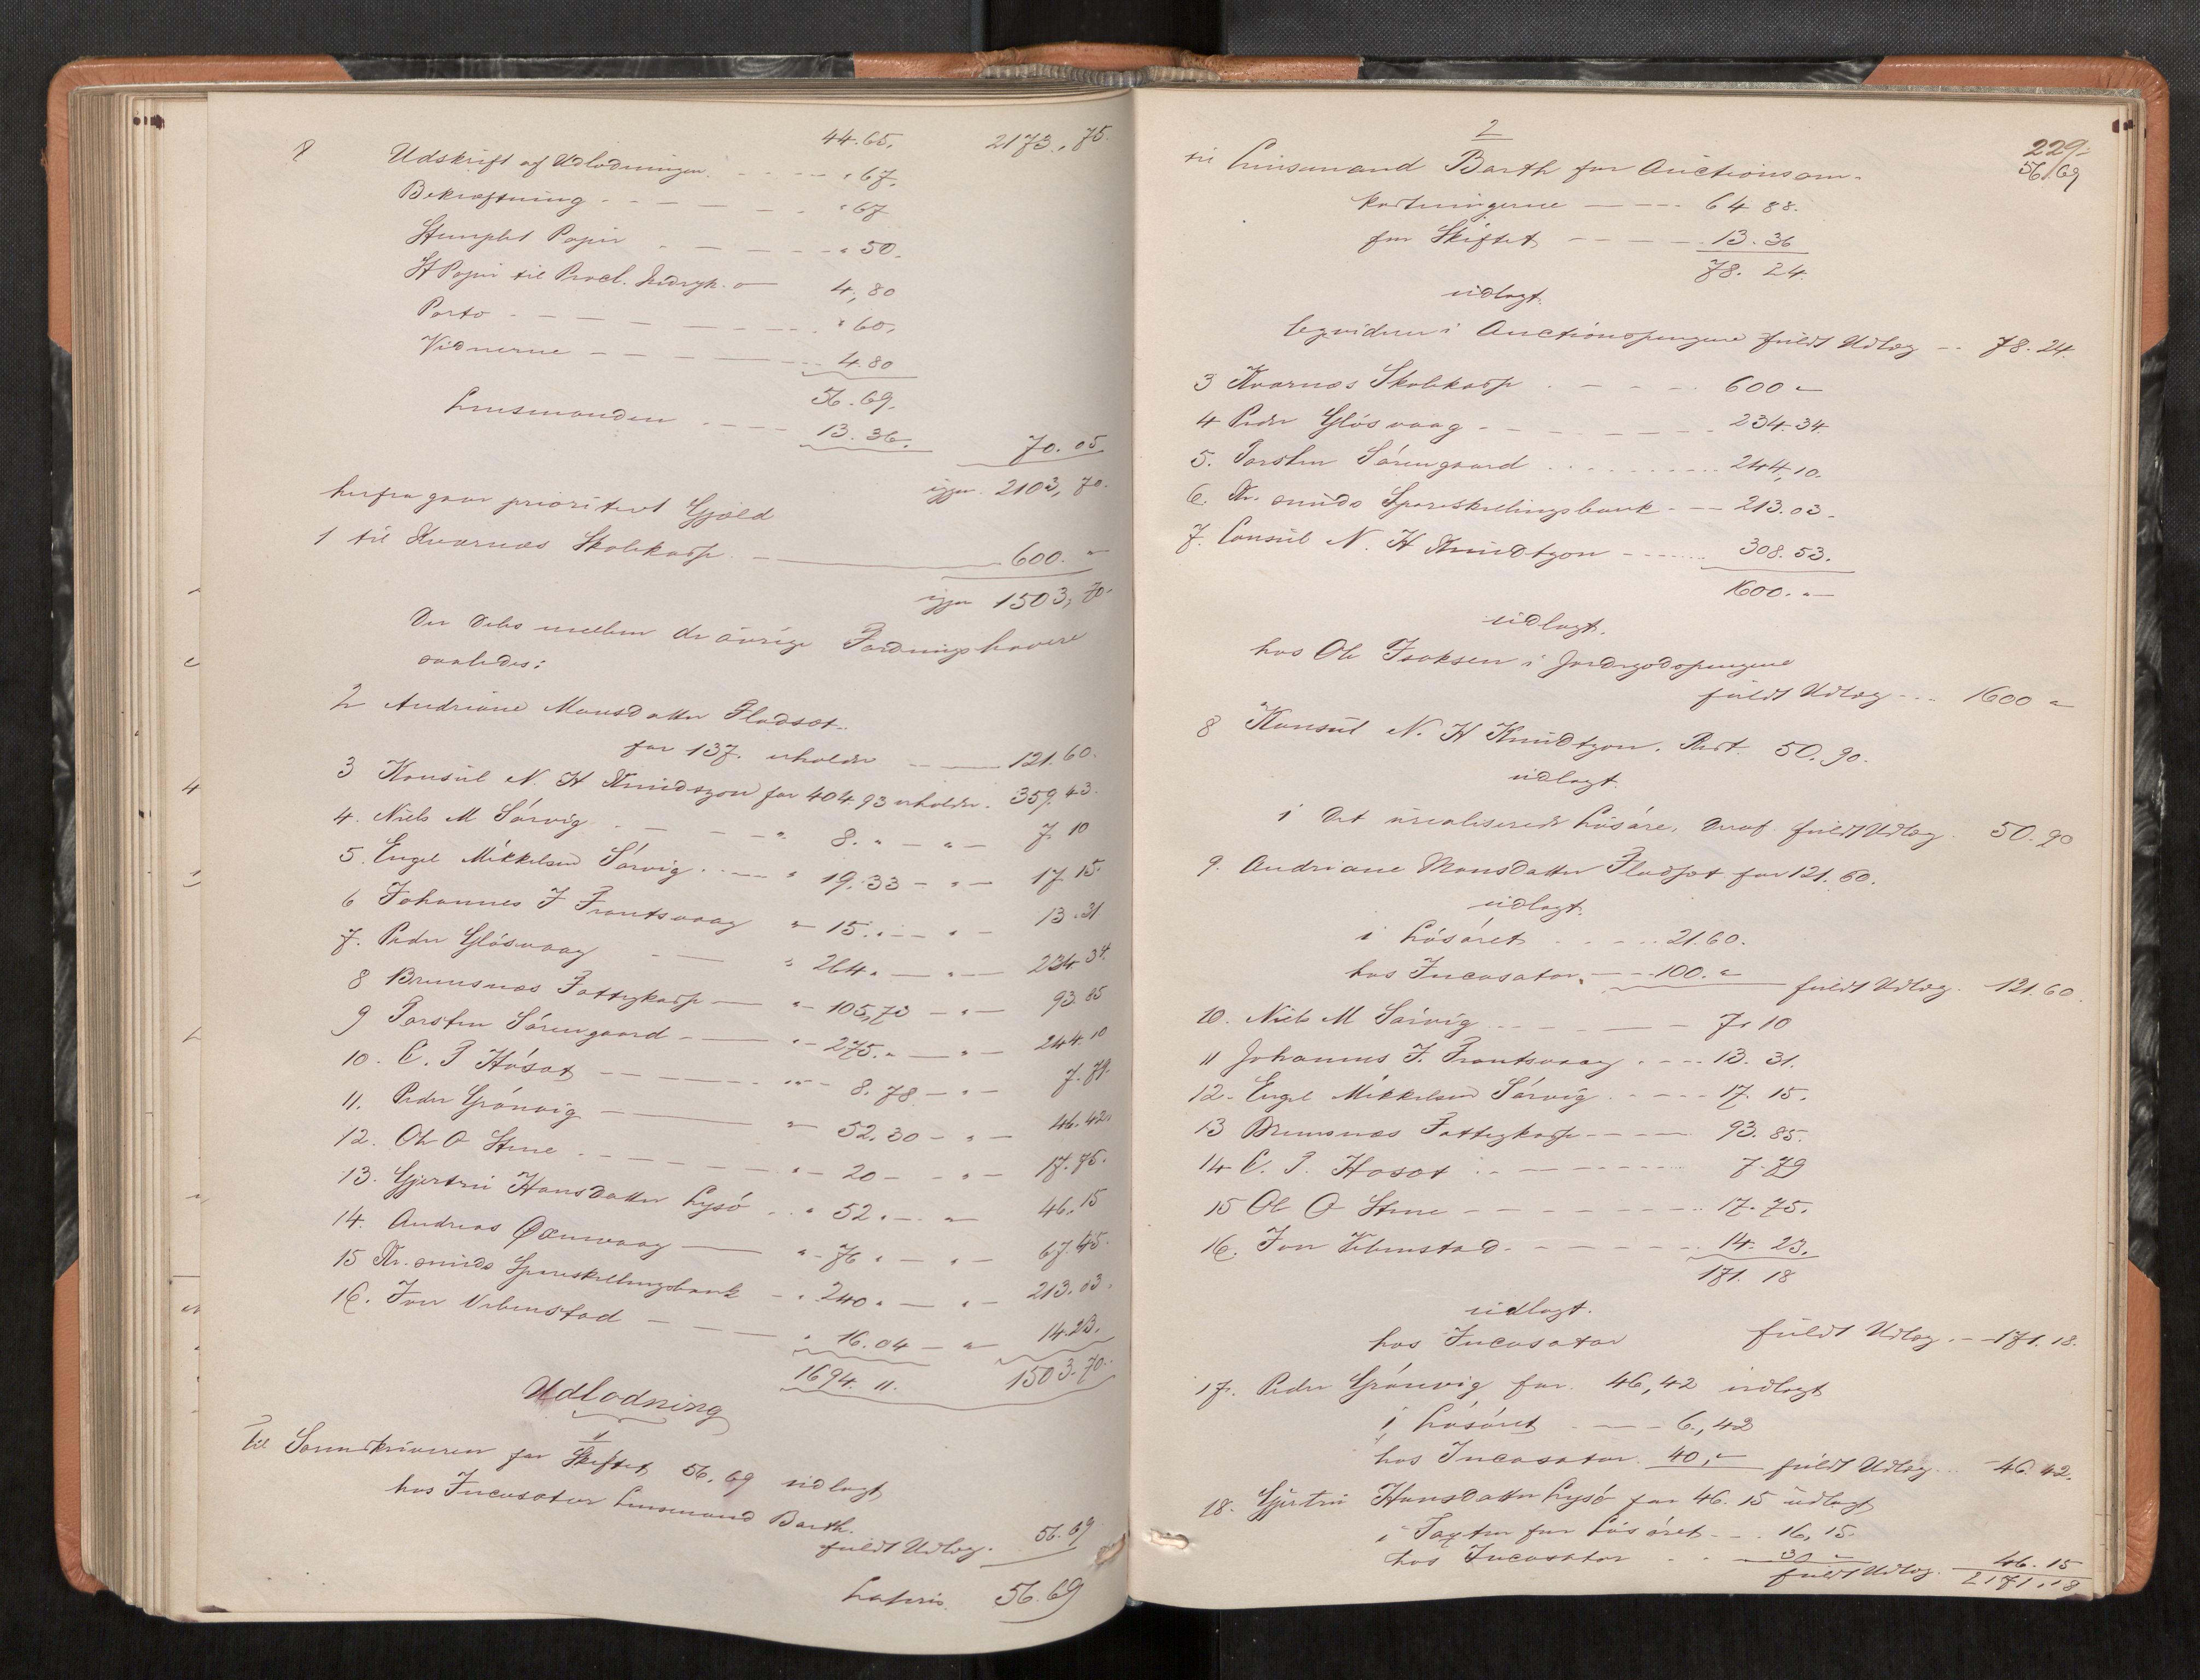 44.65. 2173.,75.
8 Udskrift af Udlodningen - - - - " 67.
Bekræftning - - - - - " 67
Stemplet Papir - - - - " 50.
St Papir til Procl. Indryk. o 4,80
Porto - - - - - - " 60,
Vidnerne - - - - - 4.80
56.69.
Lensmanden - - - - 13.36. 70.05
igjen 2103,70.
herfra gaar prioriteret Gjæld
1 til Kværnæs Skolekasse — 600. "
igjen 1503,70.
Der deles mellem de øvrige Fordringshavere
saaledes:
2 Andriane Monsdatter Fladset
for 137. erholder — 121.60.
3 Konsul N. H Knudtzon for 404.93 erholder. 359.43.
4. Niels M Sørvig - - - " 8. " - " - 7.10
5. Engel Mikkelsen Sørvig - - " 19.33 - " - 17.15.
6 Johannes J Frantsvaag " 15. " - " - 13.31
7. Peder Gløsvaag - — " 264 " — " - 234.34.
8 Bremsnæs Fattigkasse — " 105,73 - " - 93.85
9 Torsten Sørengaard - — " 275. " — " - 244.10
10. C. P Høsæt — - - " 8.78 - " - 7.79.
11. Peder Grønvig — " 52.30 - " - 46.42.
12. Ole O Stene - - - - " 20 - - " - 17.75.
13. Gjertrui Hansdatter Lysø - " 52. " - " 46.15
14. Andreas Øxenvaag — " 76 " - " - 67.45.
15 Kr.sunds Spareskillingsbank - " 240 " — " - 213.03.
16. Jon Vebenstad — - - " 16.04 - " 14.23.
1694.11. 1503.70.
Udlodning
1
Til Sorenskriveren for Skiftet 56.69 udlagt
hos Incasator Lensmand Barth.
fuldt Udlæg. 56.69
Lateris. 56.69
229.
56.69
2
til Lensmand Barth for Auctionsom-
kostningerne — 64 88.
for Skiftet — 13.36
78. 24.
udlagt.
liqviderer i Auctionspengene fuldt Udlæg - 78.24.
3 Kvarnæs Skolekasse - - - 600 "
4 Peder Gløsvaag - - - - 234.34.
5. Torsten Sørengaard - - - 244,10.
6. Kr.sunds Spareskillingsbank - - 213.03 -
7. Consul N. H Knudtzon - - - 308.53.
1600. "
udlagt.
hos Ole Isaksen i Jordegodspengene
fuldt Udlæg - - 1600 "
8 Konsul N. H Knudtzon. Rest. 50.90.
udlagt.
i det urealiserede Løsøre, deraf fuldt Udlæg. 50.90
9. Andriane Monsdatter Fladset for 121.60.
udlagt.
i Løsøret - - - 21.60.
hos Incasator. - - 100. " fuldt Udlæg. 121.60.
10. Niels M Sørvig - - - - 7.10
11 Johannes J. Frantsvaag - - - 13. 31.
12. Engel Mikkelsen Sørvig - - - 17. 15.
13 Bremsnæs Fattigkasse - - - 93. 85.
14 C. P. Hosæt - - - - 7.79
15 Ole O Stene - - - - - 17.75.
16. Jon Vebenstad - - - - 14. 23.
171. 18
udlagt.
hos Incasator fuldt Udlæg. - 171.18.
17. Peder Grønvig for. 46,42 udlagt
i Løsøret - - - 6,42
hos Incasator 40, " fuldt Udlæg - - 46.42.
18. Gjertrui Hansdatter Lysø for 46.15 udlagt
i Taxten for Løsøret - - 16,15.
hos Incasator - - 30 " 46.15
fuldt Udlæg. 2171.18